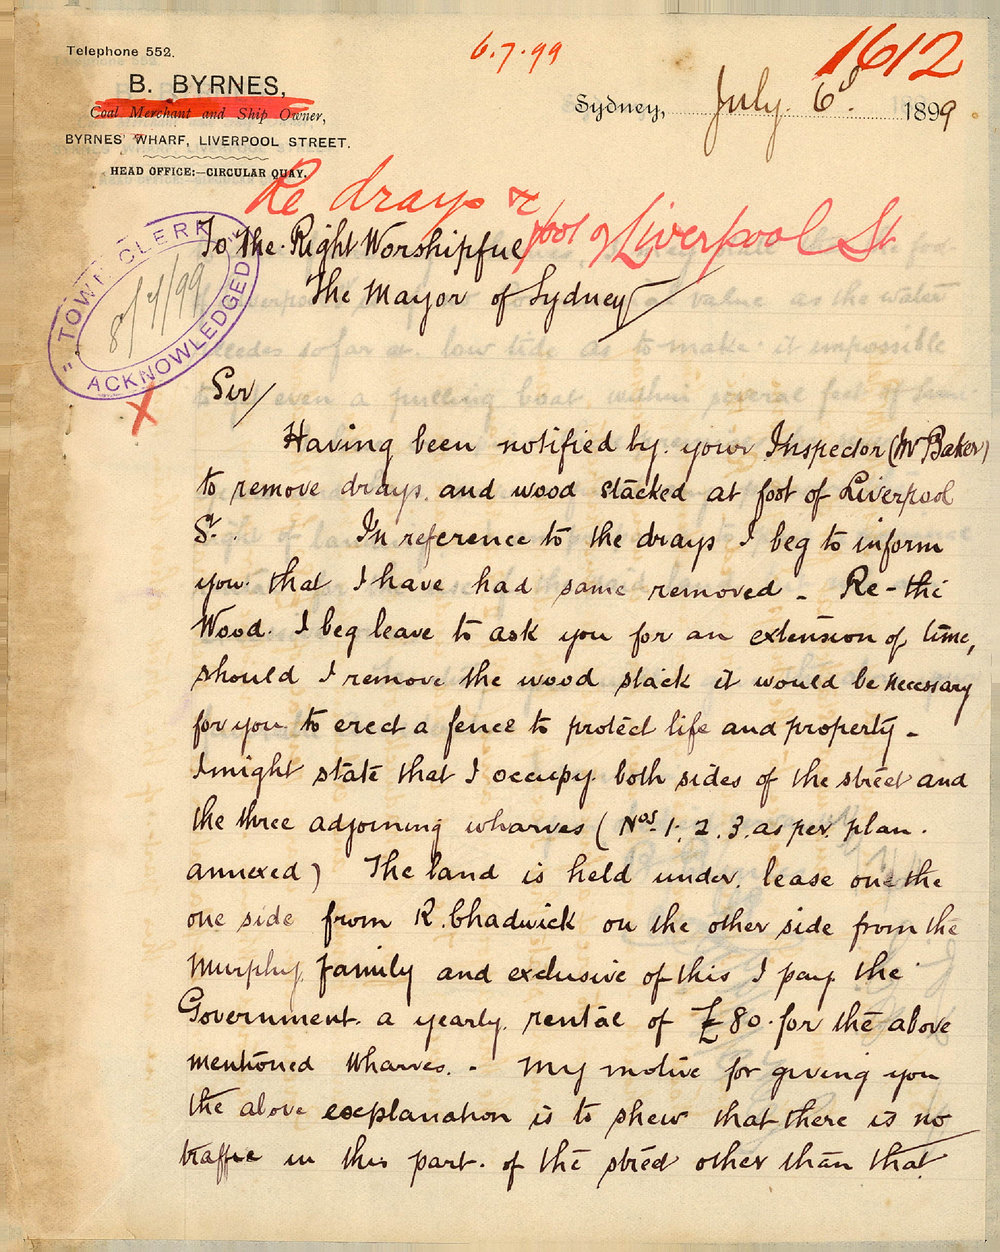 Telephone 552.
B. BYRNES,
Coal Merchant and Ship Owner,
BYRNES' WHARF, LIVERPOOL STREET.
HEAD OFFICE:—CIRCULAR QUAY.
6.7.99
1612
Sydney, July. 6th. 1899
Re drays &
foot of Liverpool St
TOWN CLERK
8/7/99
ACKNOWLEDGED
To the Right Worshipful
The Mayor of Sydney
X
Sir/
Having been notified by your Inspector (Mr Baker)
to remove drays, and wood stacked at foot of Liverpool
St. In reference to the drays I beg to inform
you that I have had same removed - Re-the
Wood. I beg leave to ask you for an extension of time,
should I remove the wood stack it would be necessary
for you to erect a fence to protect life and property -
I might state that I occupy both sides of the street and
the three adjoining wharves (Nos. 1. 2. 3. as per plan.
annexed) The land is held under lease one the
one side from R. Chadwick on the other side from the
Murphy family and exclusive of this I pay the
Government a yearly rental of £80 for the above
mentioned Wharves. - My motive for giving you
the above explanation is to shew that there is no
traffic in this part of the street other than that